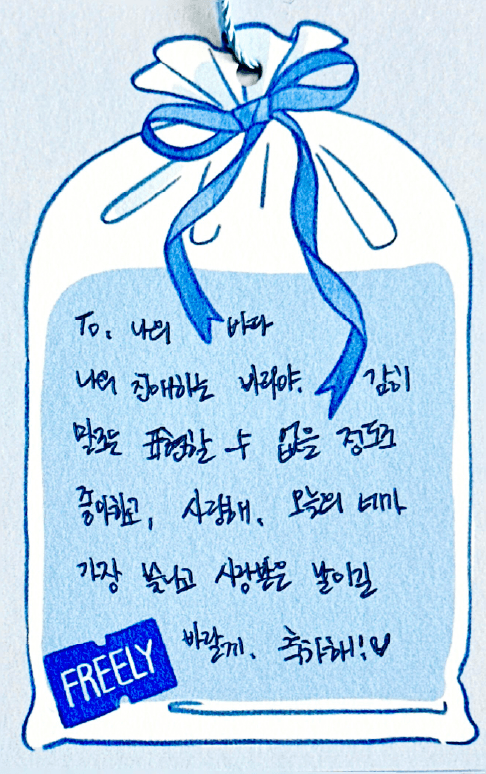 To. 나의 바다
나의 친애하는 바다야. 감히
말로는 표현할 수 없을 정도로
좋아하고, 사랑해. 오늘의 네가
가장 빛나고 사랑받은 날이길
바랄게. 축하해!♥
FREELY